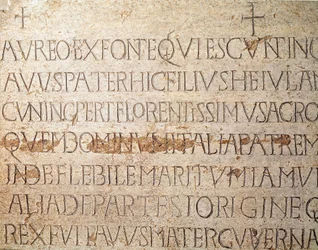 + +
AVREO EX FONTE QVIESCVNT IN
AVVS PATER HIC FILIVS HEIVLAN
CVNINCPERT FLORENTISSIMVS AC RO
QVEM DOMINVM ITALIA PATREM
INDE FLEBILE MARITVM IAM VI
ALIA DE PARTE SI ORIGINE Q
REX FVIT AVVS MATER GVBERNA